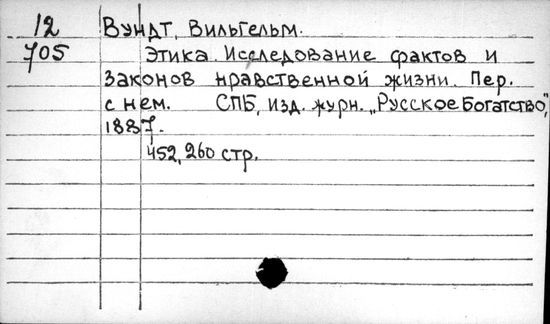 12 Вундт, Вильгельм.
705 Этика. Исследование фактов и
законов нравственной жизни. Пер.
с нем. СПБ, изд. журн. „Русское Богатство",
1887.
452, 260 стр.